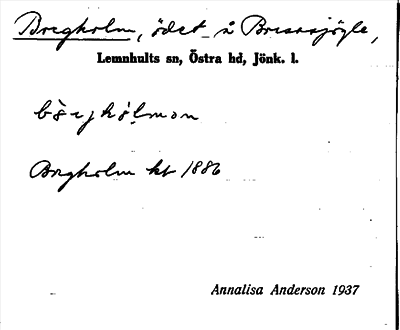 Borgholm, ödet å Bressjögle,
Lemnhults sn, Östra hd, Jönk. l.
Borgholm kt 1886
Annalisa Anderson 1937